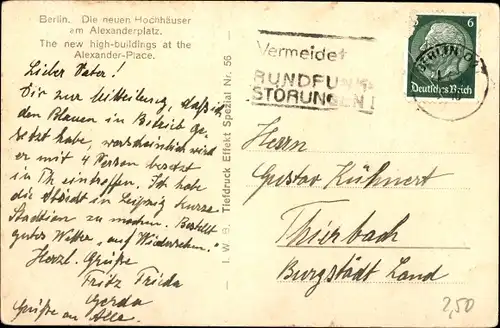 Berlin. Die neuen Hochhäuser
am Alexanderplatz.
The new high-buildings at the
Alexander-Place.
Lieber Vater!
Dir zur Mitteilung, daß ich
den Blauen in Betrieb ge-
setzt habe, warscheinlich wird
er mit 4 Person besetzt
in Th eintreffen. Ich habe
die Absicht in Leipzig kurze
Stadtion zu machen. Bestellt
gutes Wetter „auf Wiedersehen."
Herzl. Grüße
Fritz Frida
Gerda
Grüße an Alle.
I. W. B. Tiefdruck Effekt Spezial Nr. 56
Vermeidet
RUNDFUNK-
STÖRUNGEN!
BERLIN
6
Deutsches Reich
Herrn
Gustav Kühnert
Thierbach
Burgstädt Land
2,50